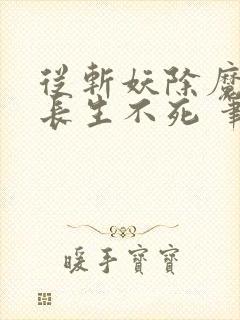 從斬妖除魔
長生不死 筆
暖手寶寶